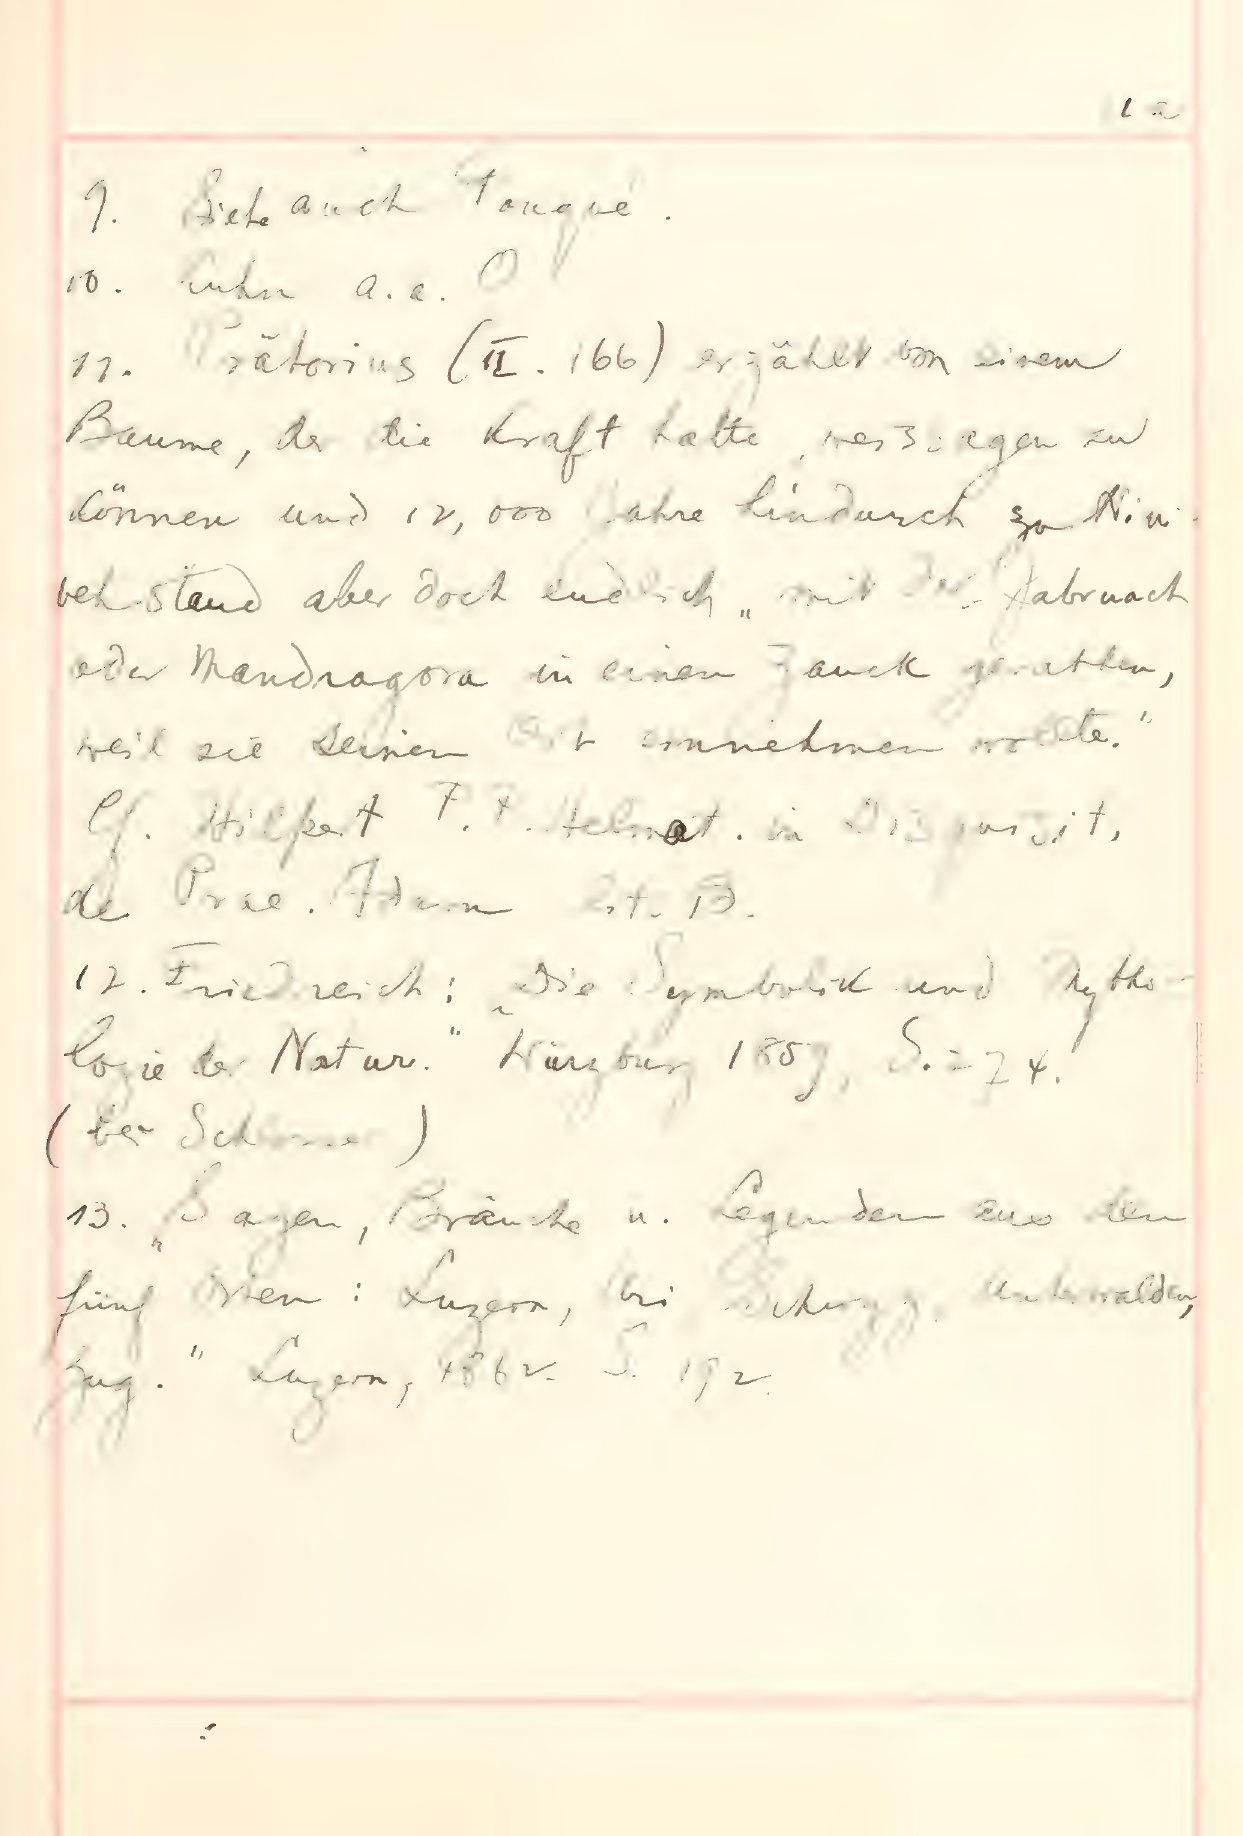 9. Siehe auch Fouqué.
10. Kuhn a. a. O
11. Prätorius (II. 166) erzählt von einem
Baume, der die Kraft hatte, weissagen zu
können und 12,000 Jahre hindurch zu Nini-
veh stand aber doch endlich „mit der Habruach
oder Mandragora in einen Zanck gerathen,
weil sie seinen Ort einnehmen wollte."
Cf. Hilpert F. F. Helmot. in Disquisit,
de Prae. Adam
12. Friedreich: „Die Symbolik und Mytho-
logie der Natur." Würzburg 1859, S. 274.
(bei
13. „Sagen, Bräuche u. Legenden aus den
fünf Orten: Luzern, Uri Schwyz, Unterwalden,
Zug." Luzern, 1862. S. 192.